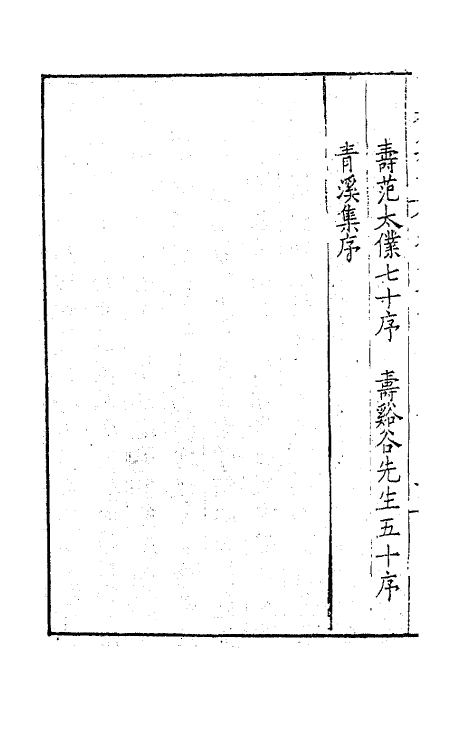 壽范太僕七十序　壽谿谷先生五十序
青溪集序